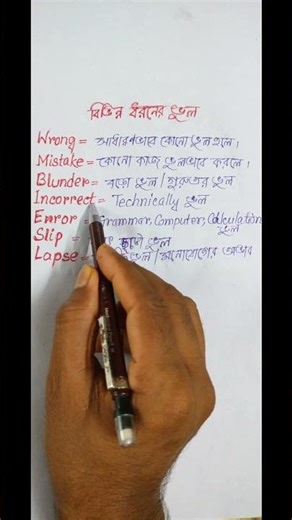 বিভিন্ন ধরনের ভুল
Wrong = সাধারণভাবে কোনো ভুল হলে।
Mistake = কোনো কাজ ভুলভাবে করলে।
Blunder = বড়ো ভুল / গুরুতর ভুল
Incorrect = Technically ভুল
Error = Grammar, Computer, Calculation ভুল
Slip = ছোট ভুল
Lapse = ভুল / মনোযোগের অভাব